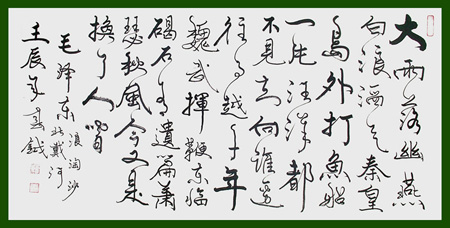 大雨落幽燕
白浪滔天秦皇
島外打魚船
一片汪洋都
不見知向誰邊
往事越千年
魏武揮鞭東臨
碣石有遺篇蕭
瑟秋風今又是
換了人間
毛澤東
浪淘沙
北戴河
壬辰年春鉞